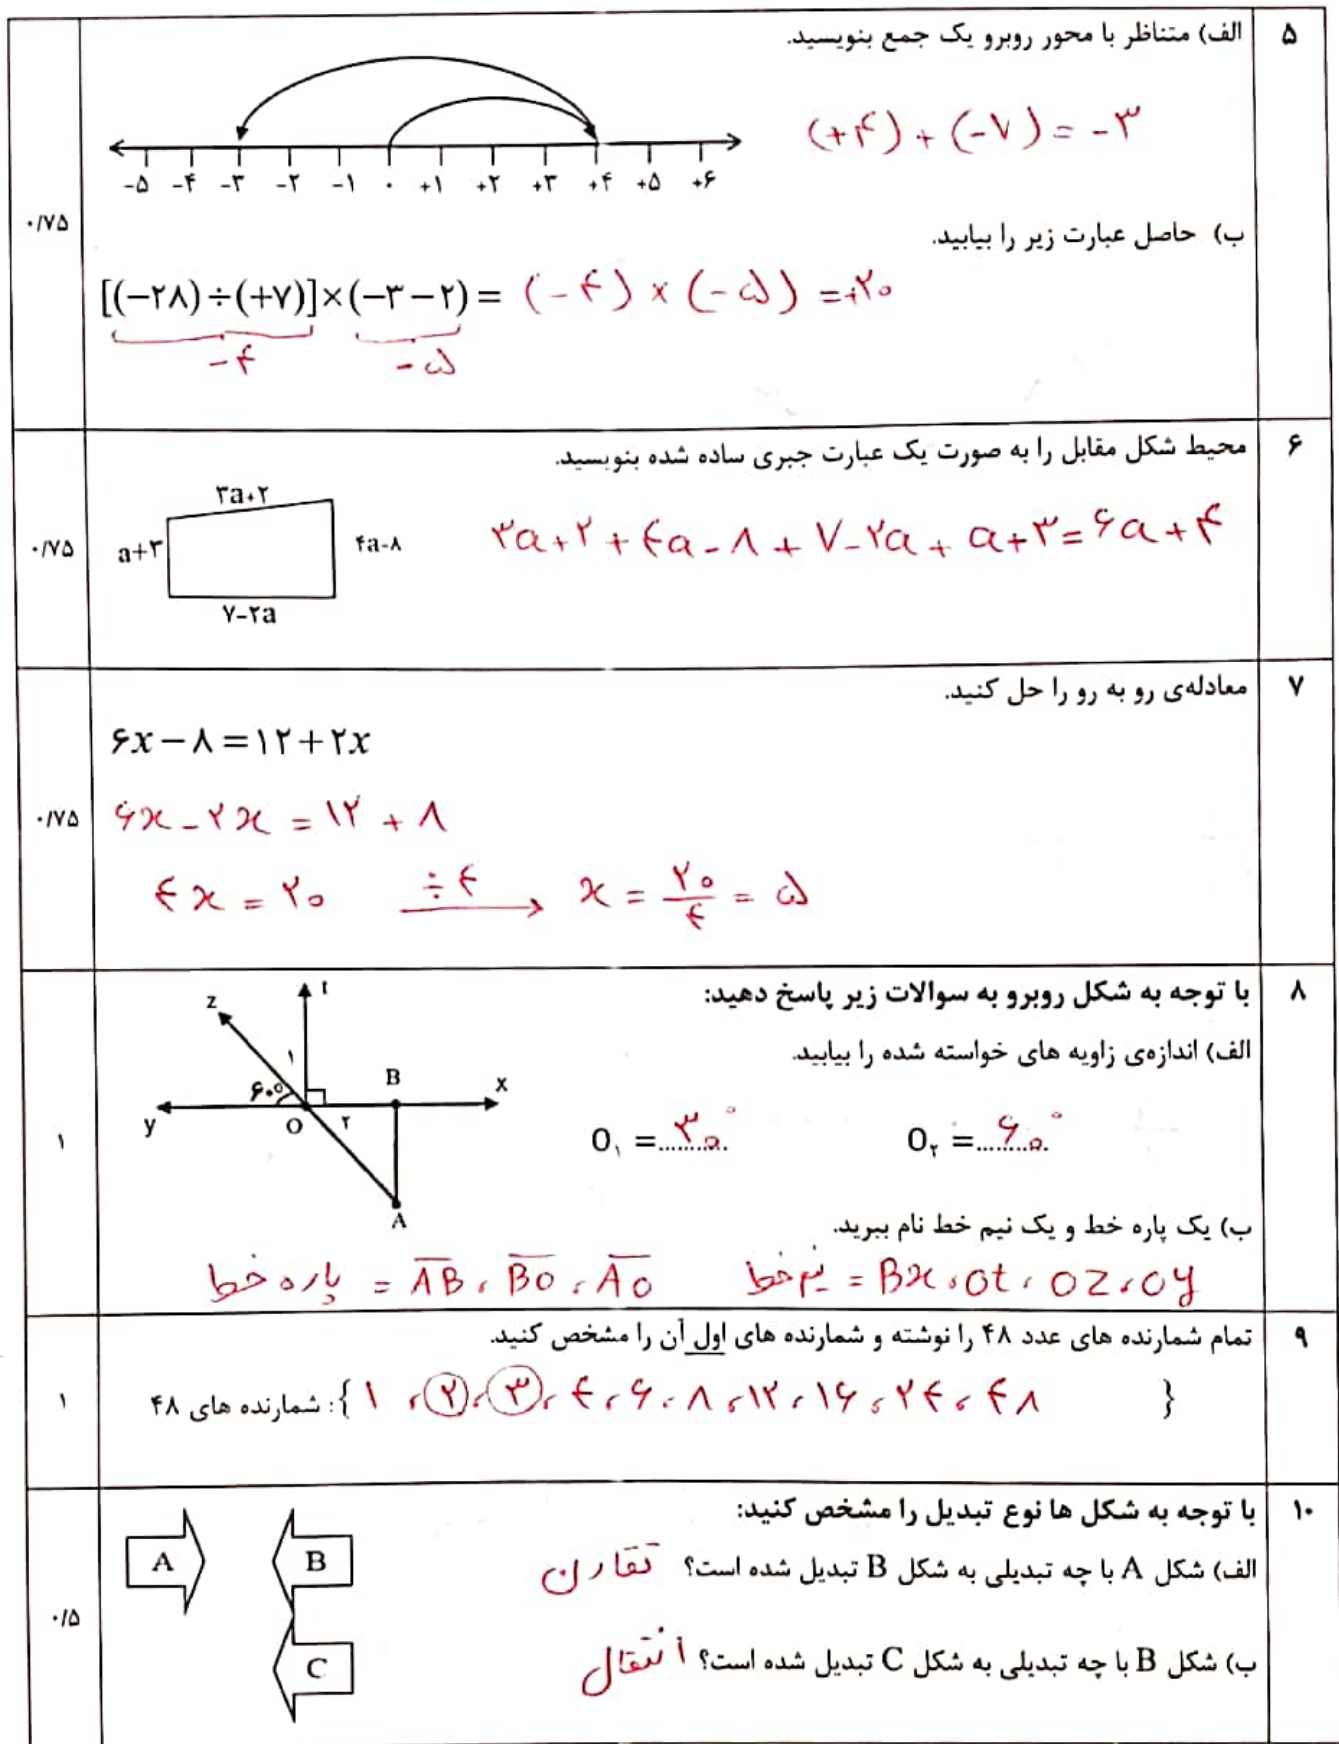 ۵
الف) متناظر با محور روبرو یک جمع بنویسید.
(+۴) + (-۷) = -۳
-۵ -۴ -۳ -۲ -۱ ۰ +۱ +۲ +۳ +۴ +۵ +۶
۰/۷۵
ب) حاصل عبارت زیر را بیابید.
[(-۲۸)÷(+۷)]×(-۳-۲)= (-۴) × (-۵) =+۲۰
-۴ -۵
۶
محیط شکل مقابل را به صورت یک عبارت جبری ساده شده بنویسید.
۳a+۲
a+۳
۴a-۸
۷-۲a
۳a+۲+۴a-۸+۷-۲a+a+۳=۶a+۴
۰/۷۵
۷
معادله‌ی رو به رو را حل کنید.
۶x-۸=۱۲+۲x
۶x-۲x=۱۲+۸
۰/۷۵
۴x=۲۰ ÷۴ x=۲۰/۴=۵
۸
با توجه به شکل روبرو به سوالات زیر پاسخ دهید:
الف) اندازه‌ی زاویه های خواسته شده را بیابید.
z t
۱
۶۰° B x
y O ۲
A
O۱ =۳۰° O۲ =۶۰°
۱
ب) یک پاره خط و یک نیم خط نام ببرید.
پاره خط = AB، BO، AO نیم خط = Bx، ot، oz، oy
۹
تمام شمارنده های عدد ۴۸ را نوشته و شمارنده های اول آن را مشخص کنید.
شمارنده های ۴۸ :{۱، ۲، ۳، ۴، ۶، ۸، ۱۲، ۱۶، ۲۴، ۴۸ }
۱
۱۰
با توجه به شکل ها نوع تبدیل را مشخص کنید:
A B
الف) شکل A با چه تبدیلی به شکل B تبدیل شده است؟ تقارن
۰/۵
ب) شکل B با چه تبدیلی به شکل C تبدیل شده است؟ انتقال
C